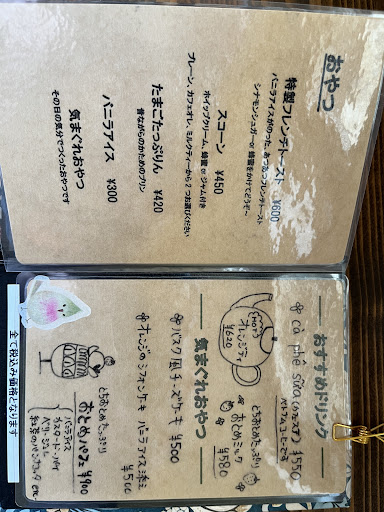 おやつ
特製フレンチトースト ¥600
バニラアイスがのった、あつあつフレンチトースト
シナモンシュガー or 蜂蜜をかけてどうぞ〜
スコーン ¥450
ホイップクリーム、蜂蜜 or ジャム付き
プレーン、カフェオレ、ミルクティーから2つお選びください
たまごたっぷりん ¥420
昔ながらのかためのプリン
バニラアイス ¥300
気まぐれおやつ
その日の気分でつくったおやつです
おすすめドリンク
cà phê sữa(カフェスア) ¥550
ベトナムコーヒーです
(HOT)
オレンジティ
¥620
とちおとめたっぷり
おとめミルク
¥580
気まぐれおやつ
バスク風チーズケーキ ¥500
オレンジのシフォンケーキ バニラアイス添え
¥500
とちおとめたっぷり
おとめパフェ ¥900
バニラアイス
紅茶のパンナコッタ etc
全て税込み価格となります